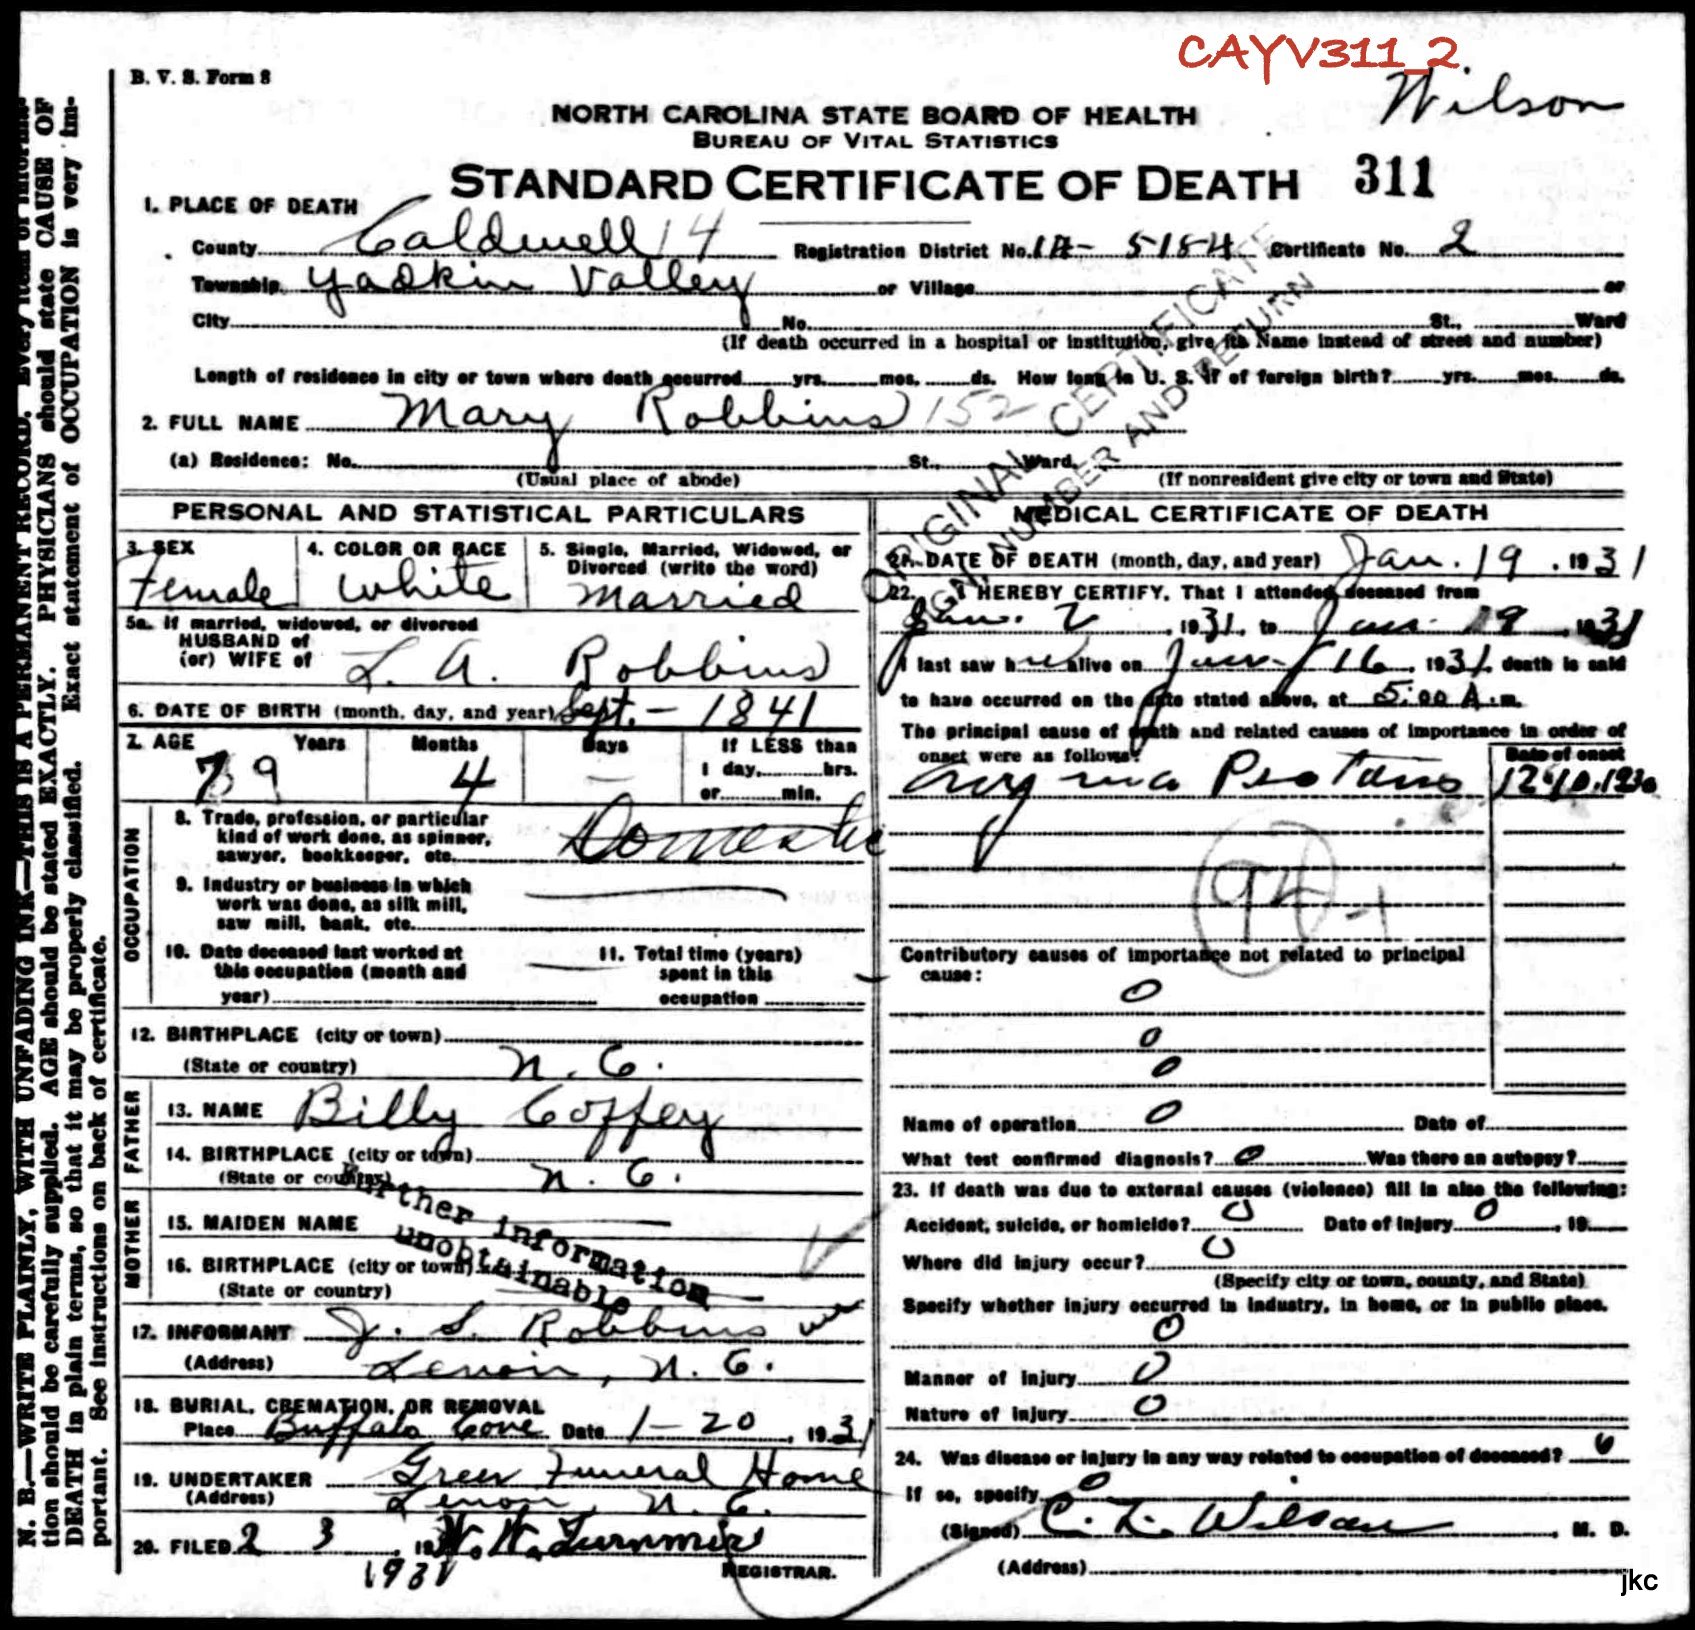 CAYV311_2
B. V. S. Form 8
Wilson
NORTH CAROLINA STATE BOARD OF HEALTH
BUREAU OF VITAL STATISTICS
STANDARD CERTIFICATE OF DEATH 311
1. PLACE OF DEATH
County Caldwell 14 Registration District No. 14- 5154 Certificate No. 2
Township Yadkin Valley or Village or
City No. St., Ward
(If death occurred in a hospital or institution, give its Name instead of street and number)
Length of residence in city or town where death occurred yrs. mos. ds. How long in U. S. if of foreign birth? yrs. mos. ds.
2. FULL NAME Mary Robbins 152
(a) Residence: No. St., Ward.
(Usual place of abode) (If nonresident give city or town and State)
ORIGINAL CERTIFICATE
SIGN, NUMBER AND RETURN
PERSONAL AND STATISTICAL PARTICULARS
3. SEX
Female
4. COLOR OR RACE
White
5. Single, Married, Widowed, or
Divorced (write the word)
Married
5a. If married, widowed, or divorced
HUSBAND of
(or) WIFE of L. A. Robbins
6. DATE OF BIRTH (month, day, and year) Sept. - 1841
7. AGE Years Months Days If LESS than
79 4 — 1 day, hrs.
or min.
OCCUPATION
8. Trade, profession, or particular
kind of work done, as spinner,
sawyer, bookkeeper, etc. Domestic
9. Industry or business in which
work was done, as silk mill,
saw mill, bank, etc.
10. Date deceased last worked at
this occupation (month and
year)
11. Total time (years)
spent in this
occupation
12. BIRTHPLACE (city or town)
(State or country) N. C.
FATHER
13. NAME Billy Coffey
14. BIRTHPLACE (city or town)
(State or country) N. C.
MOTHER
15. MAIDEN NAME
16. BIRTHPLACE (city or town)
(State or country)
Further information
unobtainable
17. INFORMANT J. S. Robbins
(Address) Lenoir, N. C.
18. BURIAL, CREMATION, OR REMOVAL
Place Buffalo Cove Date 1-20, 1931
19. UNDERTAKER Greer Funeral Home
(Address) Lenoir, N. C.
20. FILED 2 3, 19
1931
REGISTRAR.
MEDICAL CERTIFICATE OF DEATH
21. DATE OF DEATH (month, day, and year) Jan. 19, 1931
22. I HEREBY CERTIFY, That I attended deceased from
Jan. 2, 1931, to Jan 19, 1931
I last saw her alive on Jan 16, 1931, death is said
to have occurred on the date stated above, at 5:00 A.m.
The principal cause of death and related causes of importance in order of
onset were as follows:
Date of onset
Angina Pectoris 12-10-1930
94 -1
Contributory causes of importance not related to principal
cause:
0
0
0
Name of operation 0 Date of
What test confirmed diagnosis? 0 Was there an autopsy?
23. If death was due to external causes (violence) fill in also the following:
Accident, suicide, or homicide? 0 Date of injury 0, 19
Where did injury occur? 0
(Specify city or town, county, and State)
Specify whether injury occurred in industry, in home, or in public place.
0
Manner of injury 0
Nature of injury 0
24. Was disease or injury in any way related to occupation of deceased? 0
If so, specify 0
(Signed) C. L. Wilson, M. D.
(Address)
N. B.—WRITE PLAINLY, WITH UNFADING INK—THIS IS A PERMANENT RECORD. Every item of informa-
tion should be carefully supplied. AGE should be stated EXACTLY. PHYSICIANS should state CAUSE OF
DEATH in plain terms, so that it may be properly classified. Exact statement of OCCUPATION is very im-
portant. See instructions on back of certificate.
jkc